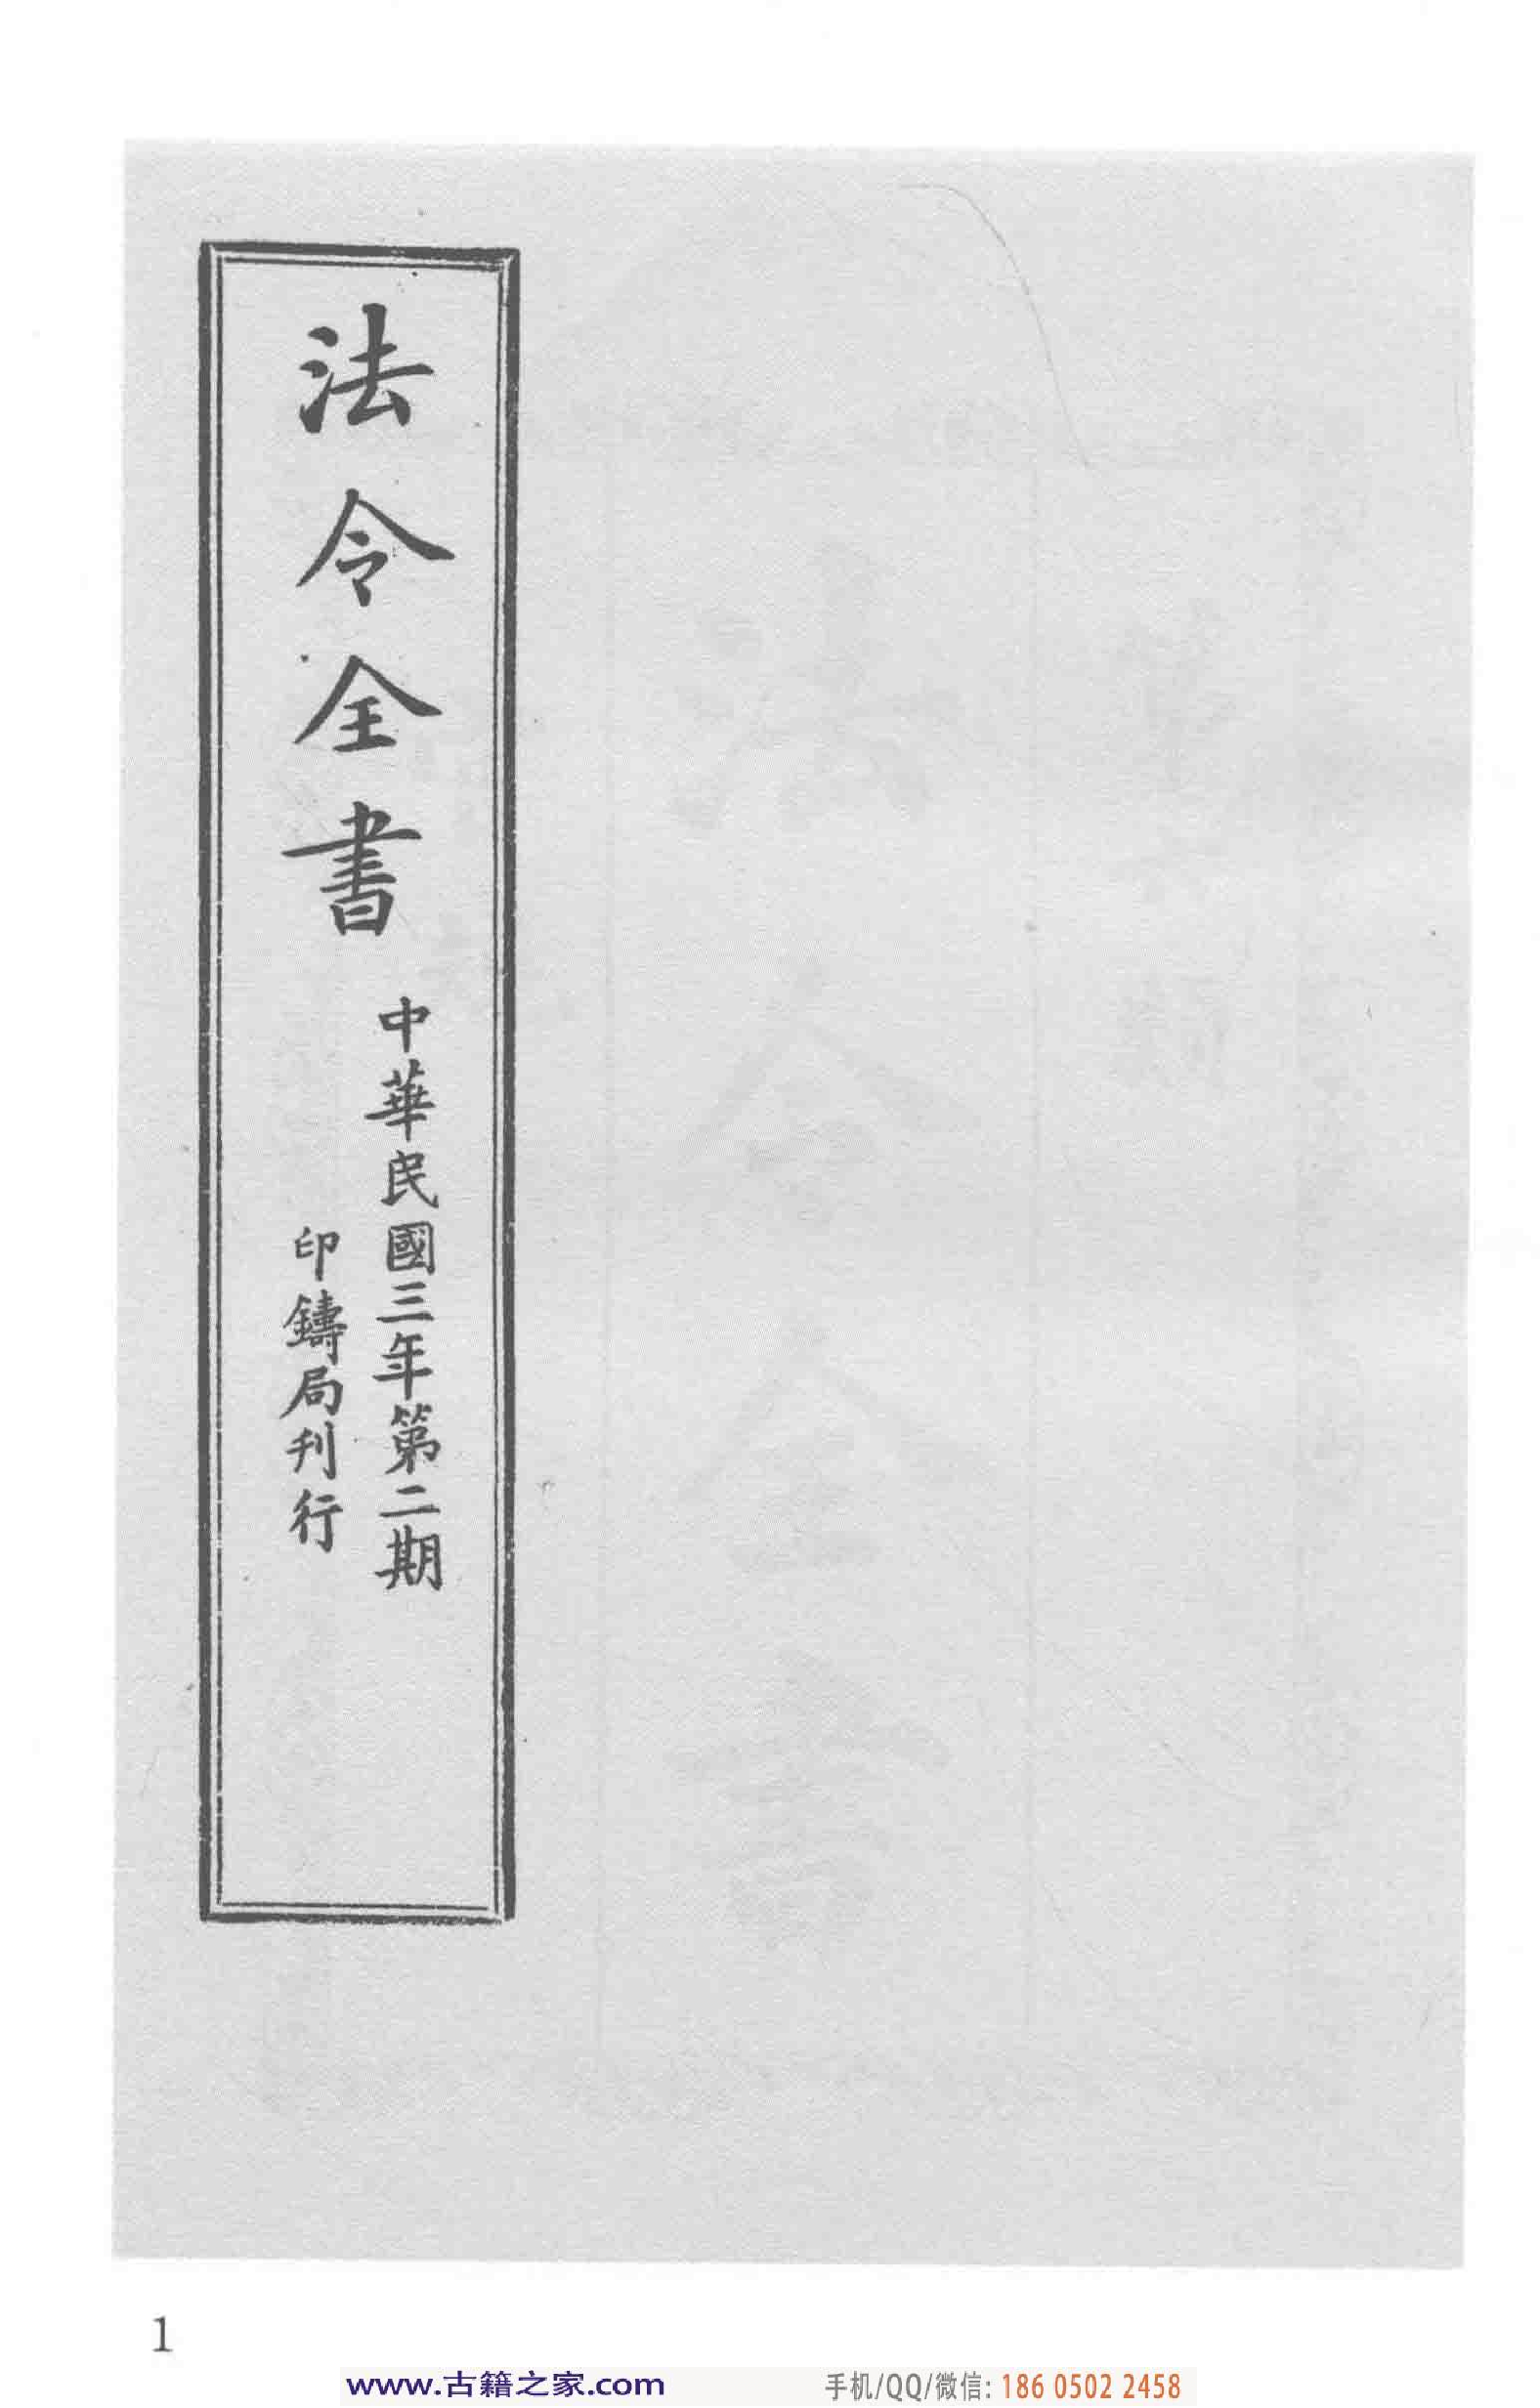 法令全書
中華民國三年第二期
印鑄局刊行
1
www.古籍之家.com
手机/QQ/微信: 186 0502 2458